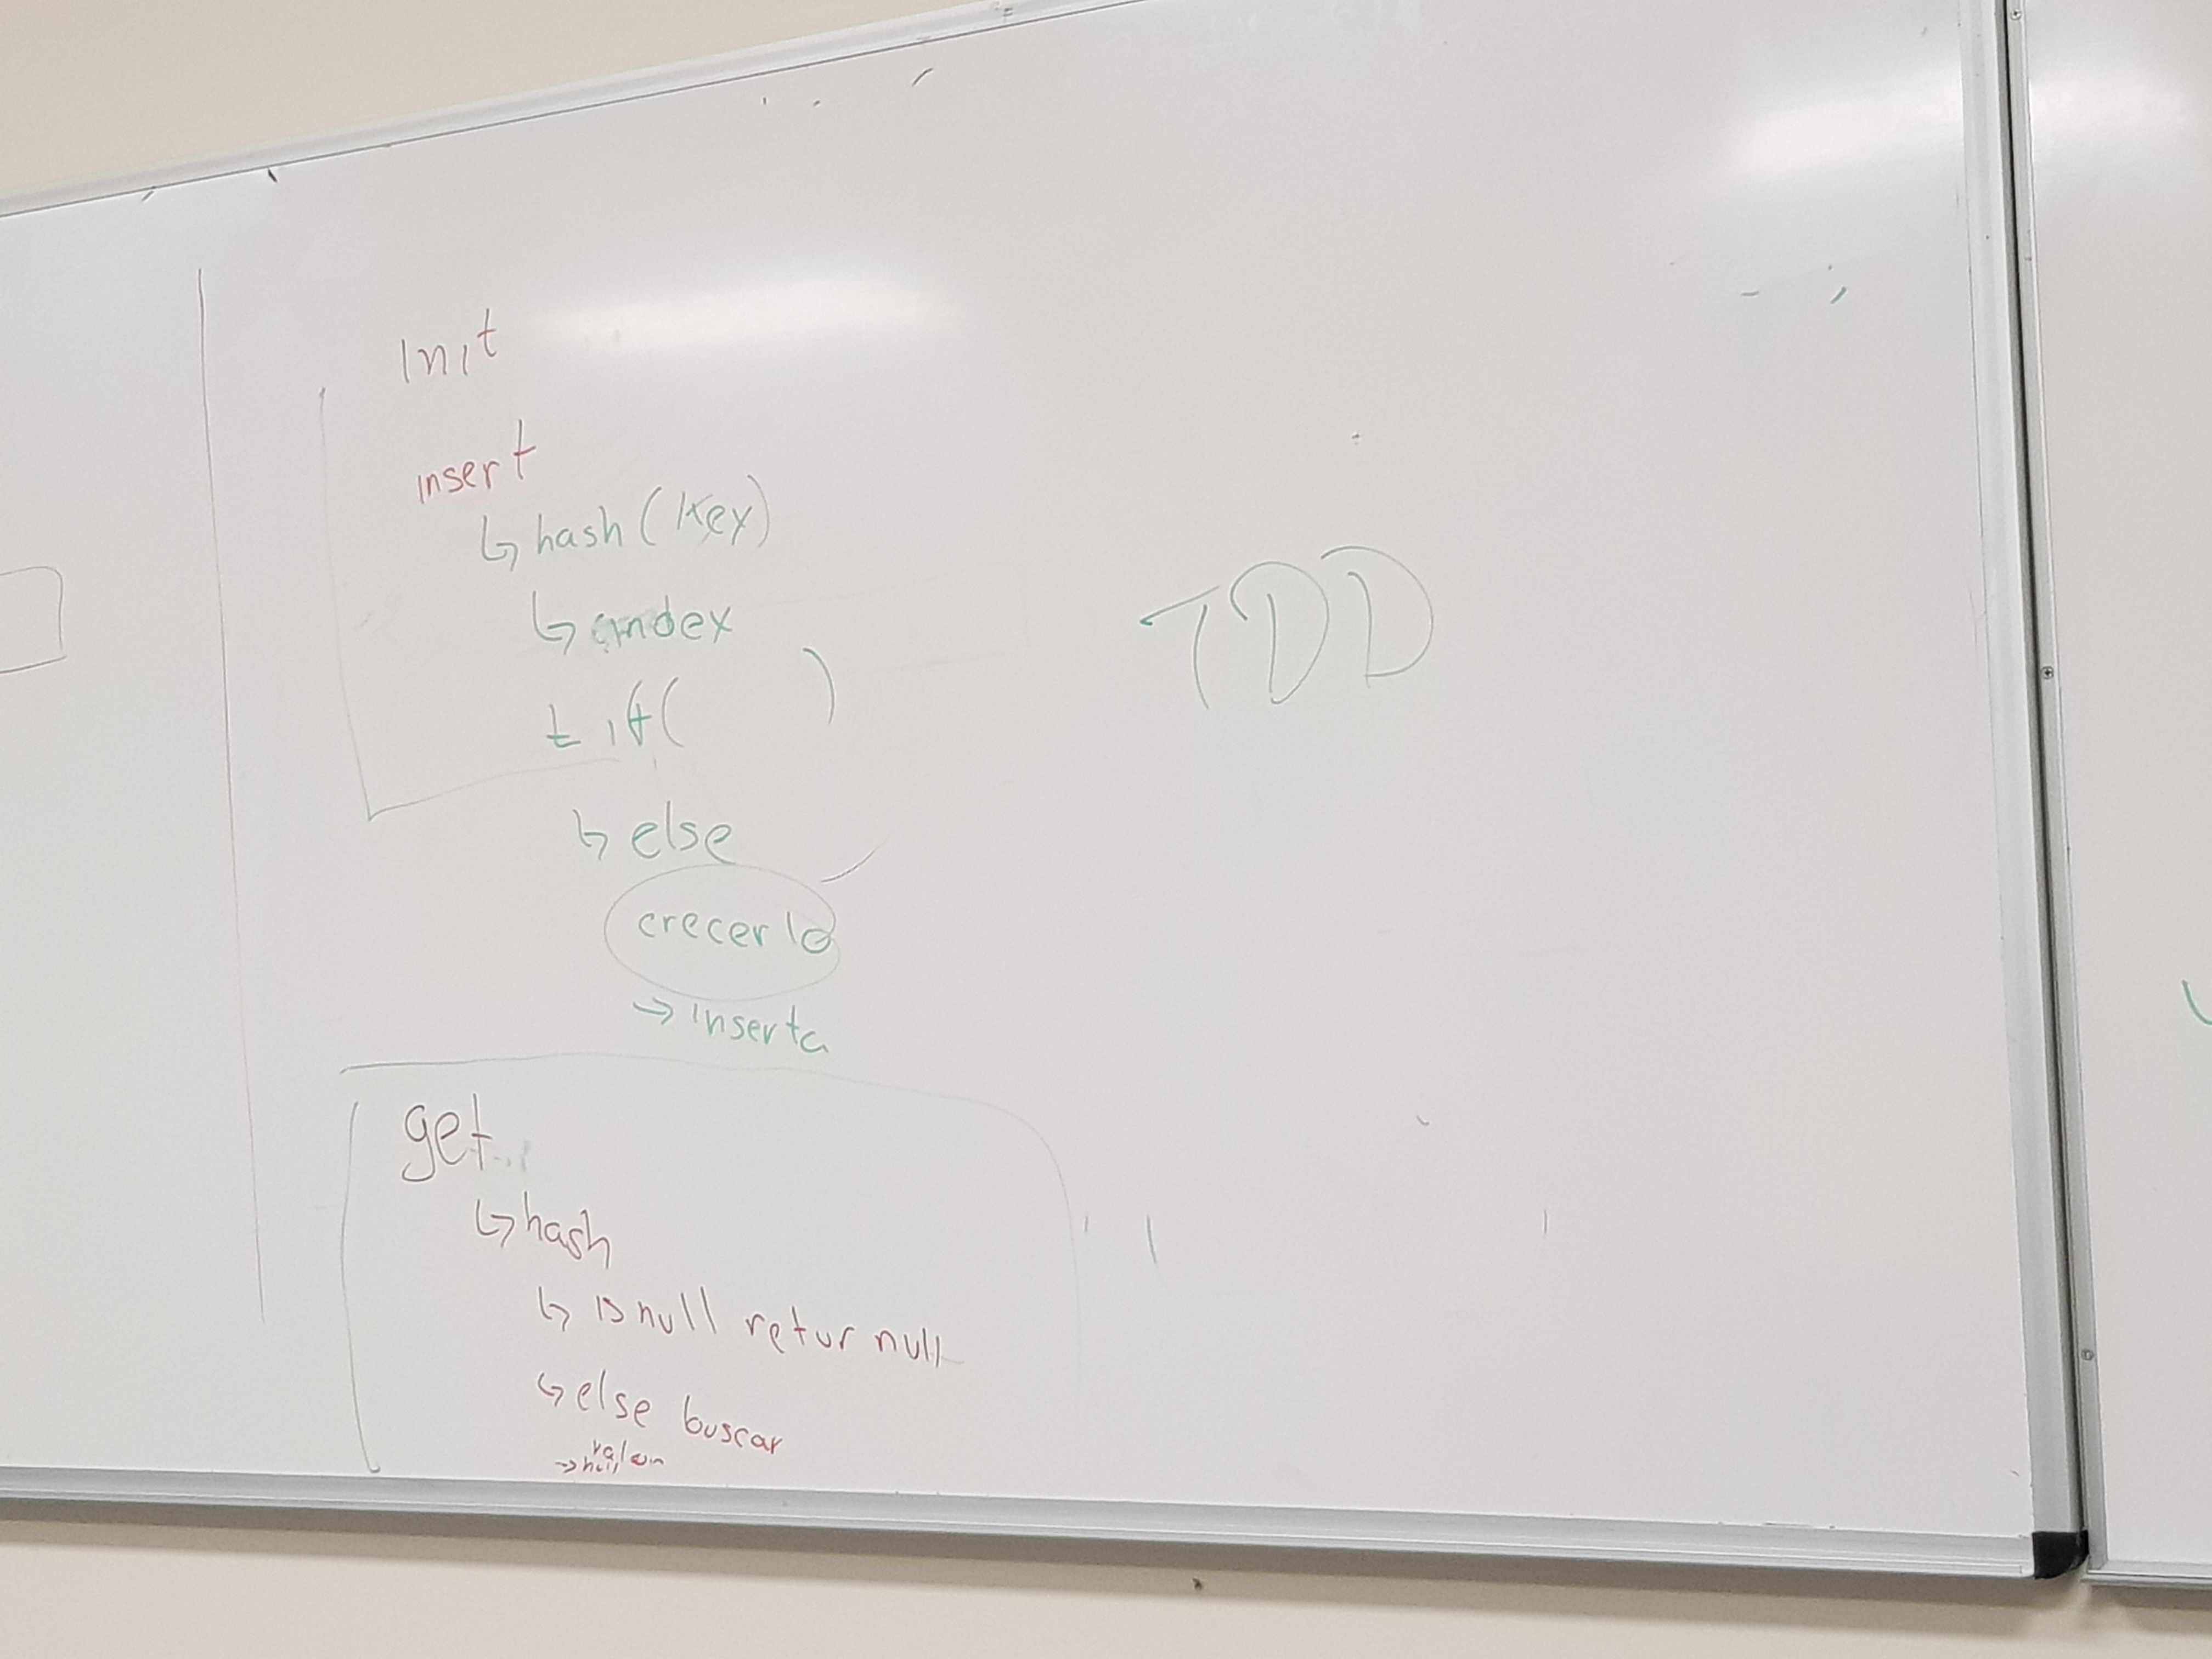 Init
insert
↳ hash (key)
↳ index
↳ if (          )
↳ else
crecerlo
→ inserta
TDD
get
↳ hash
↳ is null retur null
↳ else buscar
→ null